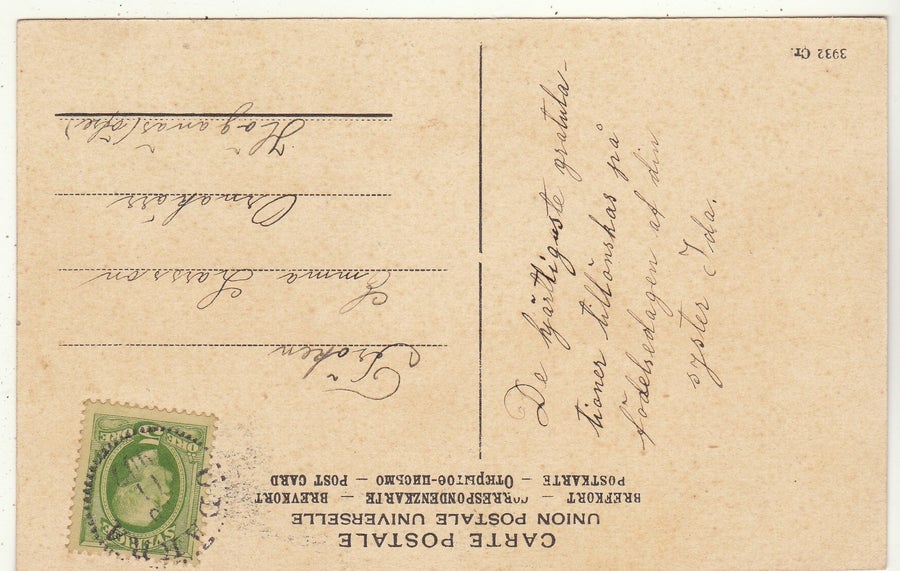 CARTE POSTALE
UNION POSTALE UNIVERSELLE
BREFKORT — CORRESPONDENZKARTE — BREVKORT
POSTKARTE — Открытое-письмо — POST CARD
Fröken
Emma Larsson
Ornakärr
Höganäs (öfre)
De hjärtligaste gratula-
tioner tillönskas på
födelsedagen af din
syster Ida.
3932 Cr.
SVERIGE